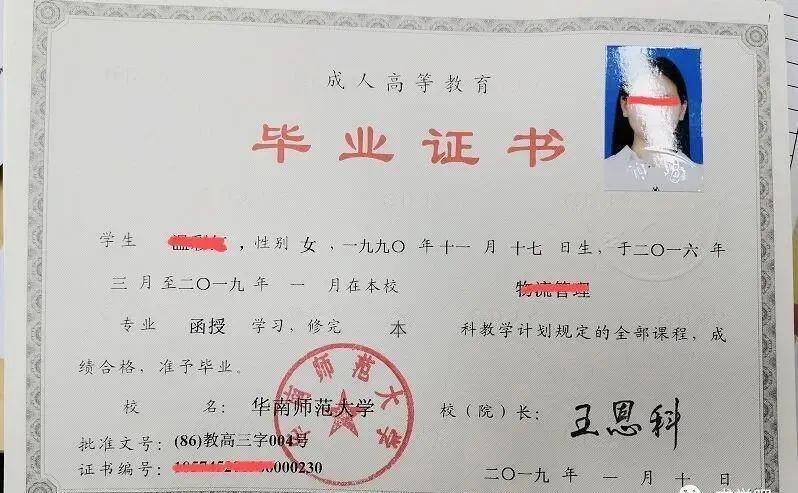 成人高等教育
毕业证书
学生 ，性别 女 ，一九九〇 年 十一 月 十七 日生，于二〇一六 年
三 月至二〇一九 年 一 月在本校 物流管理
专业 函授 学习，修完 本 科教学计划规定的全部课程，成
绩合格，准予毕业。
校 名： 华南师范大学 校（院）长： 王恩科
南师范大学
批准文号：(86)教高三字004号
证书编号： 000230
二〇一九 年 一 月 十 日